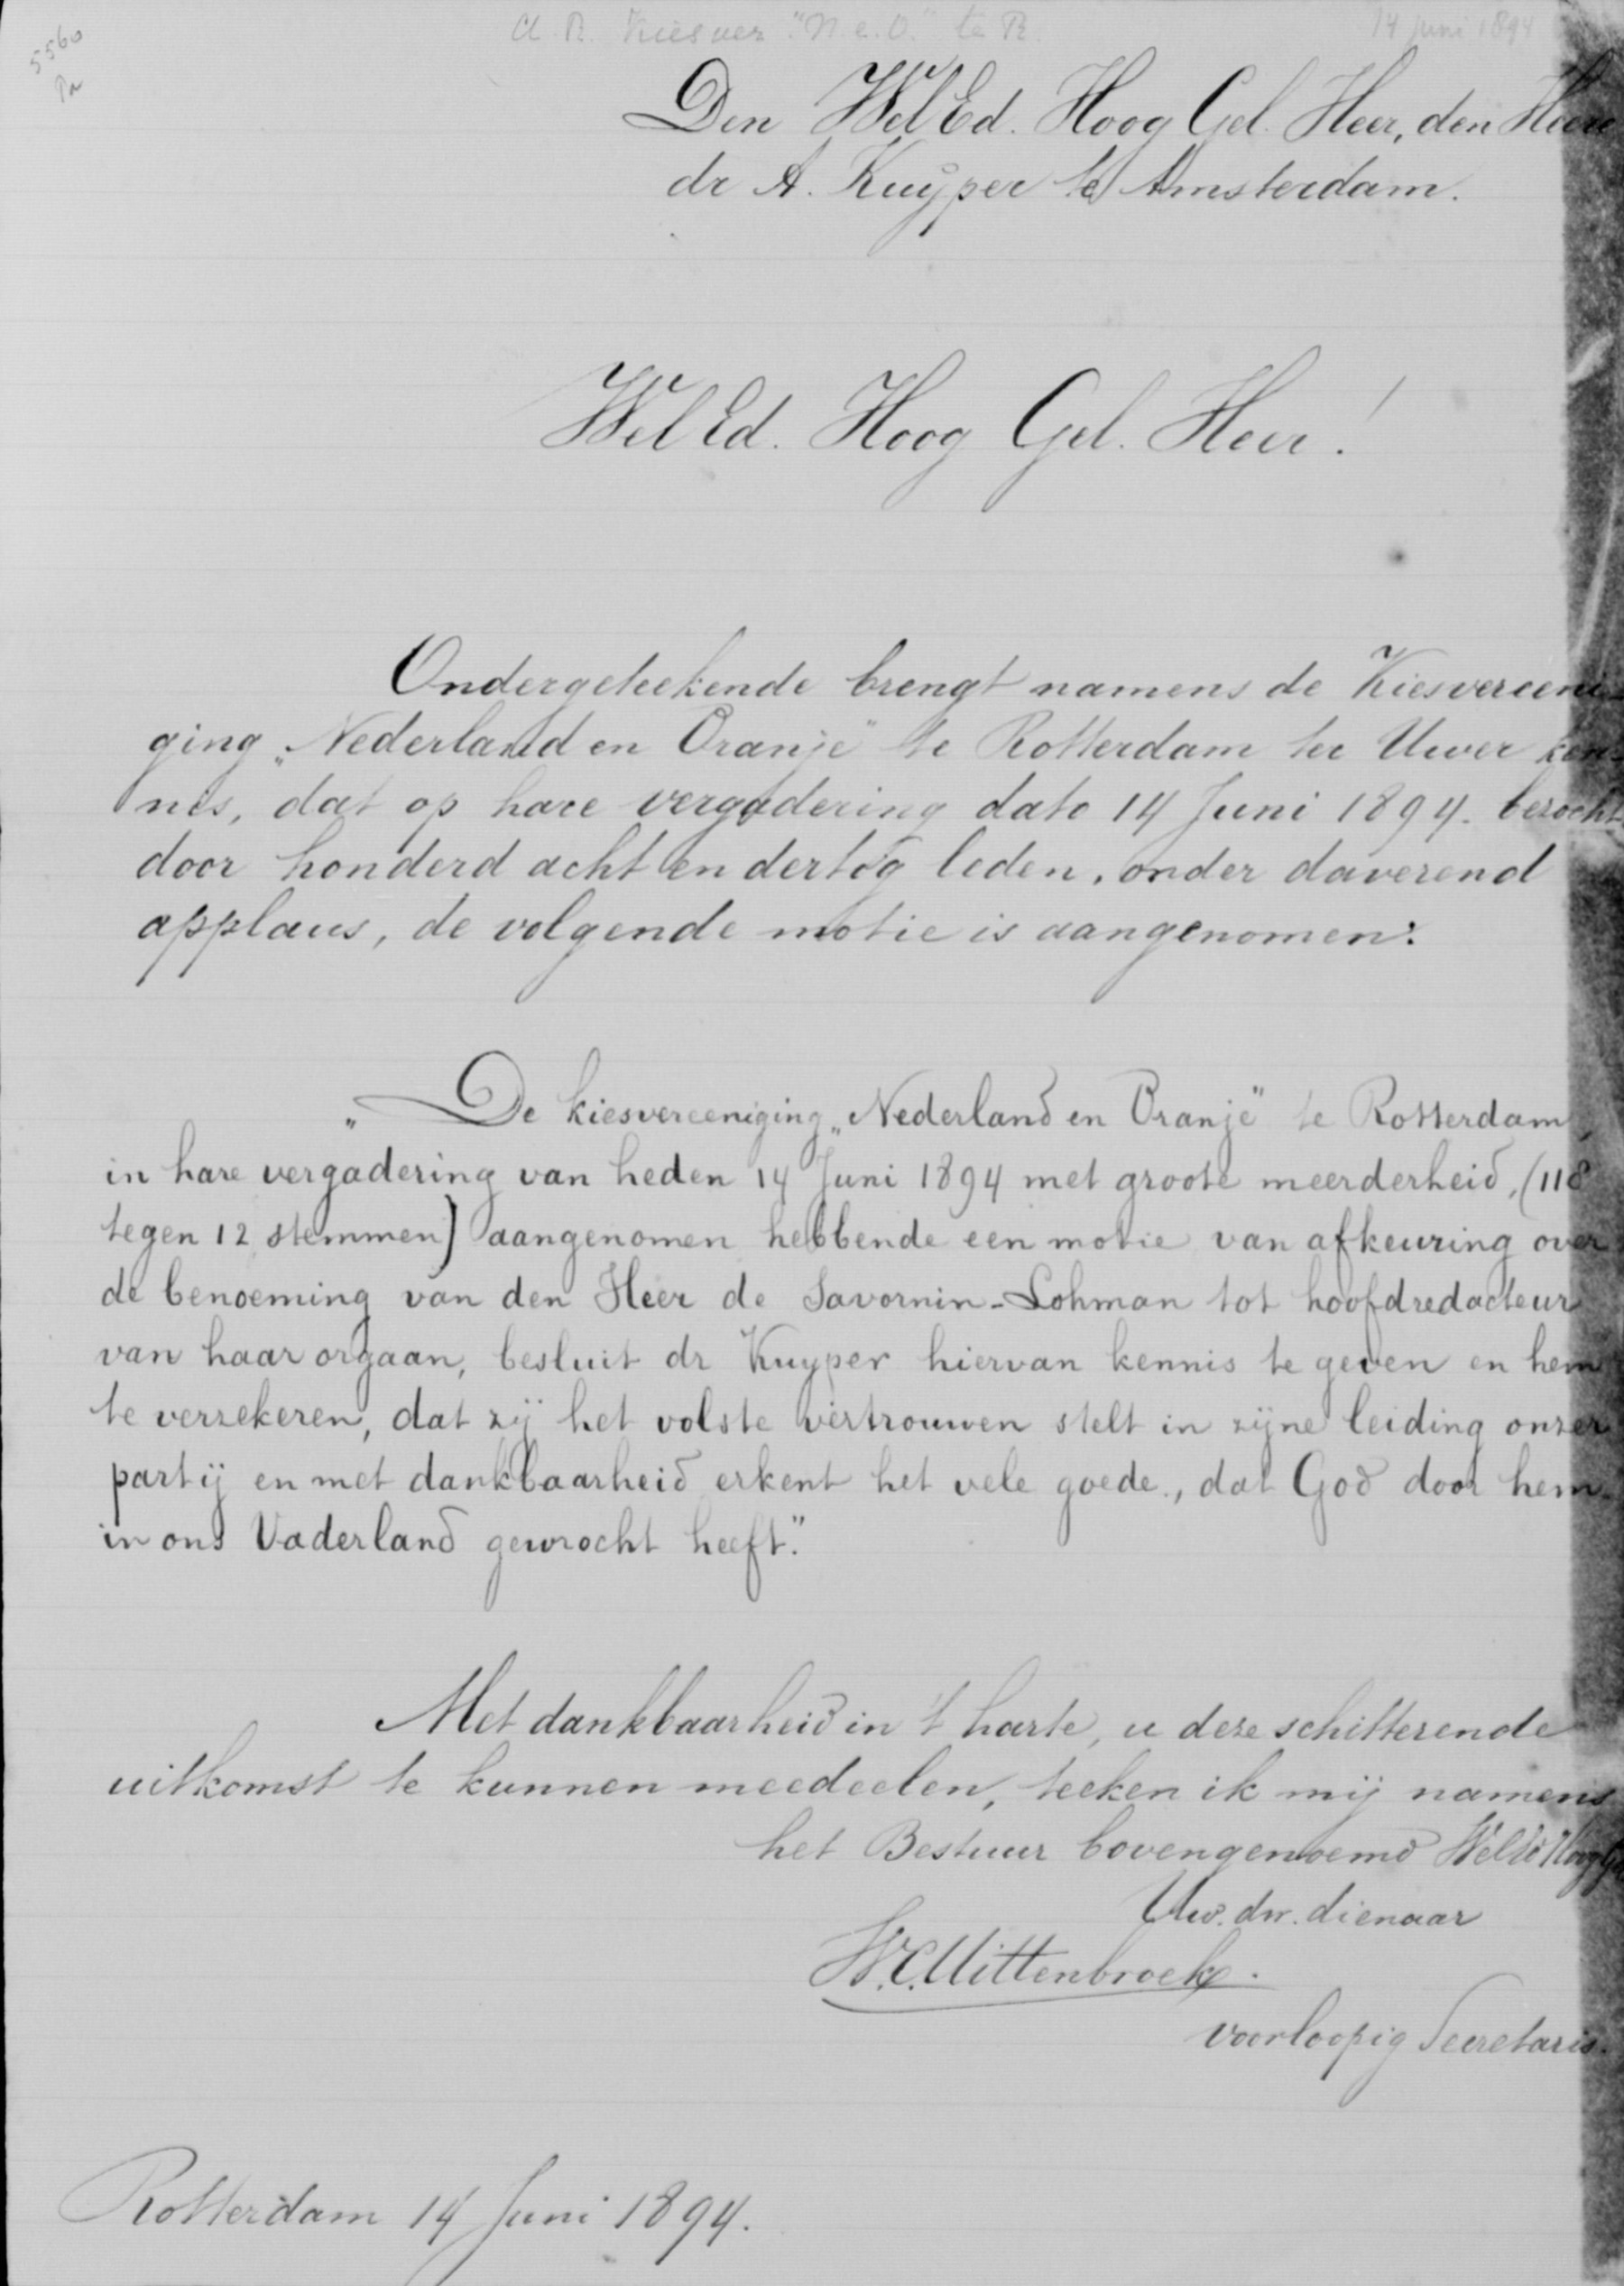 A. R. Kiesver. "N. e. O." te R. 14 Juni 1894
5560
Den WelEd. Hoog Gel. Heer, den Heere
dr A. Kuyper te Amsterdam.
WelEd. Hoog Gel. Heer!
Ondergeteekende brengt namens de Kiesvereeni-
ging „Nederland en Oranje" te Rotterdam ter Uwer ken-
nis, dat op hare vergadering dato 14 Juni 1894. bezocht
door honderd acht en dertig leden, onder daverend
applaus, de volgende motie is aangenomen:
„De kiesvereeniging „Nederland en Oranje" te Rotterdam,
in hare vergadering van heden 14 Juni 1894 met groote meerderheid, (118
tegen 12 stemmen) aangenomen hebbende een motie van afkeuring over
de benoeming van den Heer de Savornin-Lohman tot hoofdredacteur
van haar orgaan, besluit dr Kuyper hiervan kennis te geven en hem
te verzekeren, dat zij het volste vertrouwen stelt in zijne leiding onzer
partij en met dankbaarheid erkent het vele goede, dat God door hem
in ons Vaderland gewrocht heeft."
Met dankbaarheid in 't harte, u deze schitterende
uitkomst te kunnen meedeelen, teeken ik mij namens
het Bestuur bovengenoemd WelEd Hoog
Uw. dw. dienaar
W.C. Uittenbroek.
voorloopig Secretaris.
Rotterdam 14 Juni 1894.